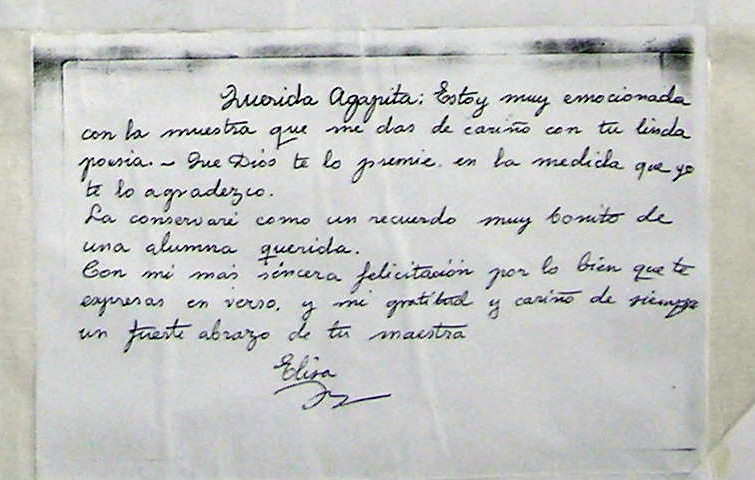 Querida Agapita: Estoy muy emocionada
con la muestra que me das de cariño con tu linda
poesia. - Que Dios te lo premie en la medida que yo
te lo agradezco.
La conservaré como un recuerdo muy bonito de
una alumna querida.
Con mi más sincera felicitación por lo bien que te
expresas en verso, y mi gratitud y cariño de siempre
un fuerte abrazo de tu maestra
Elisa